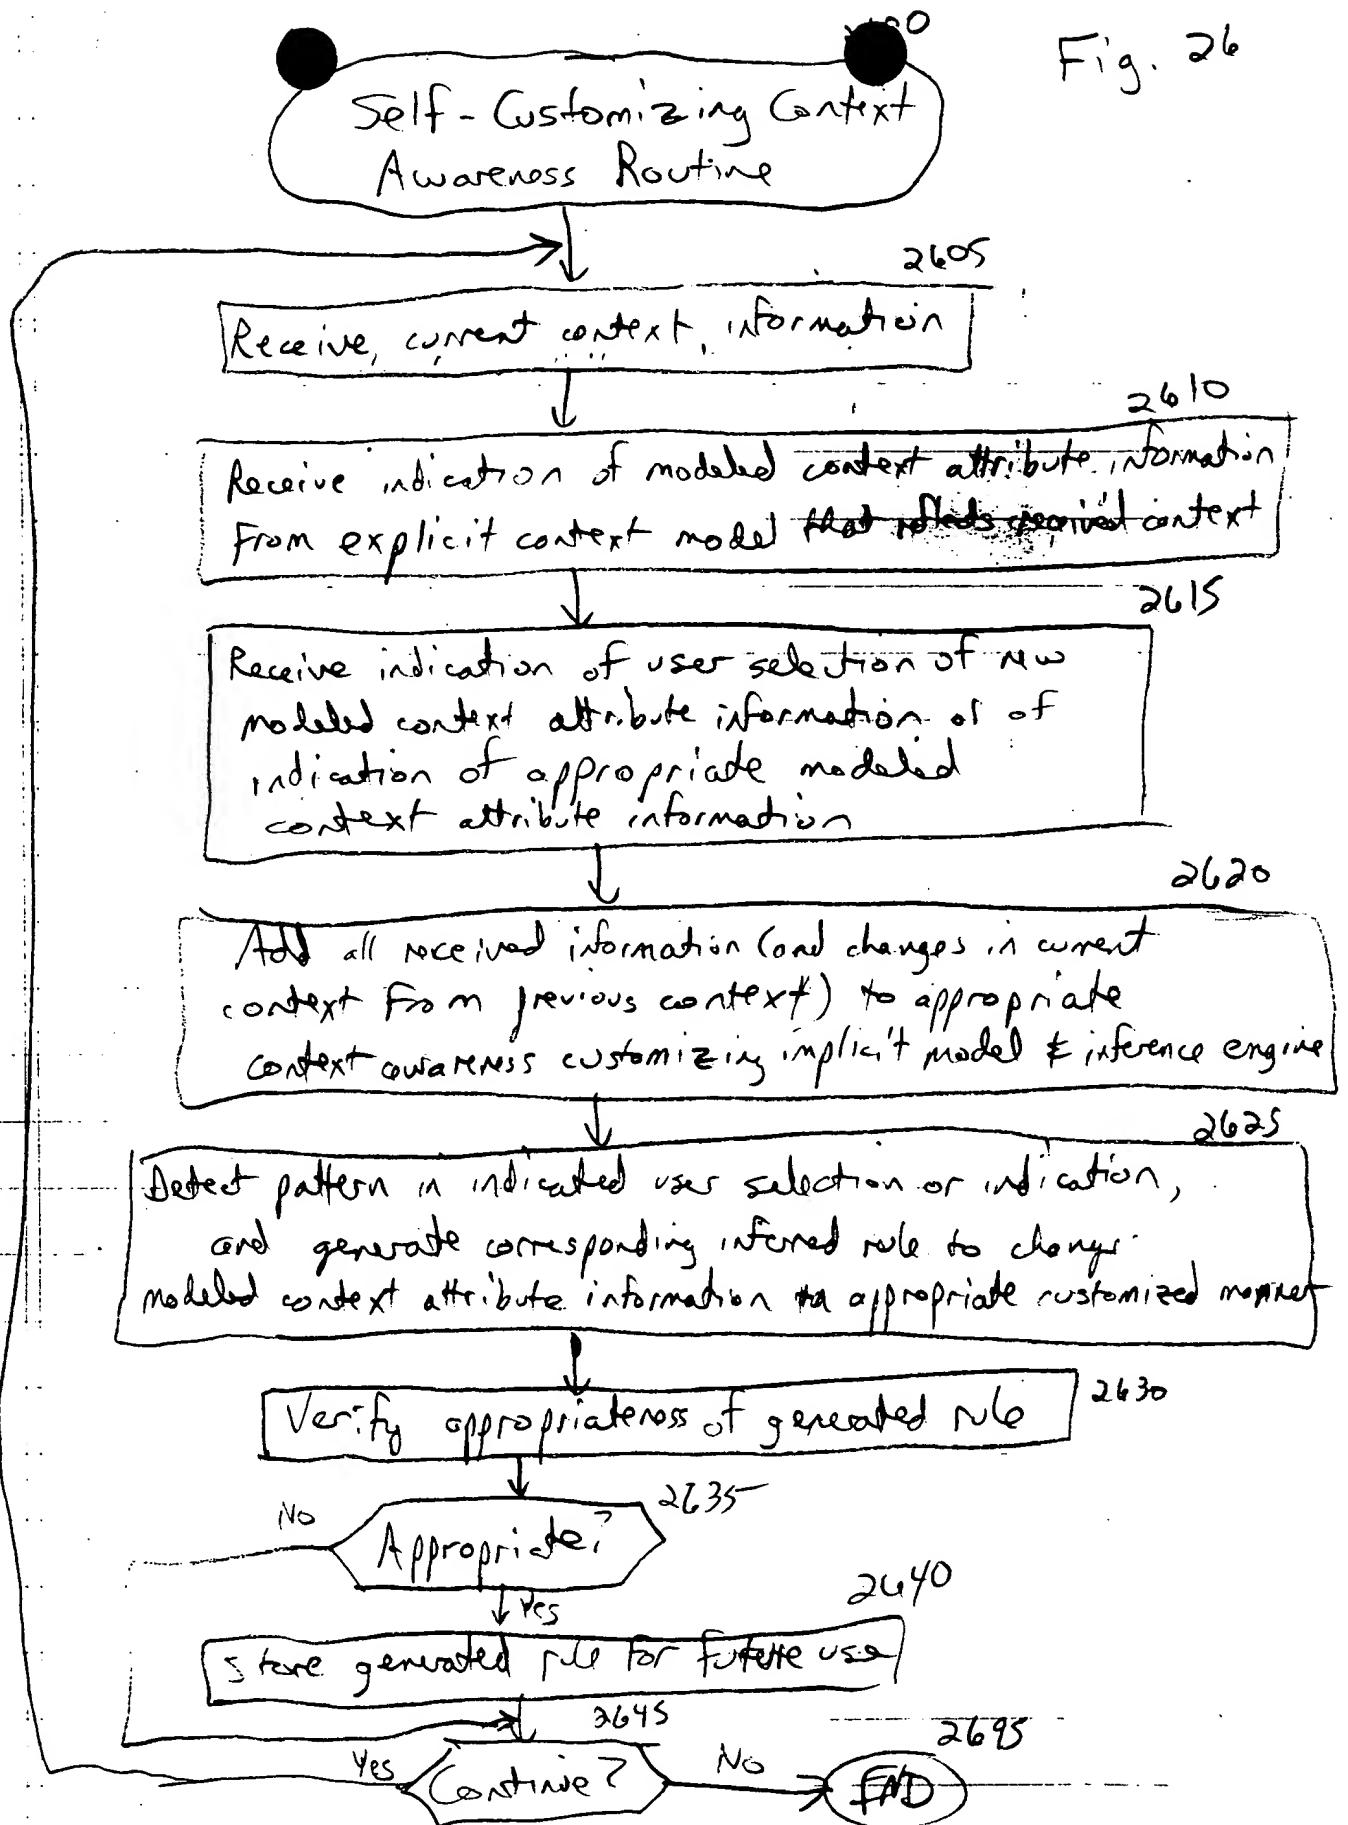 Fig. 26
Self-Customizing Context
Awareness Routine
2605
Receive current context information
2610
Receive indication of modeled context attribute information
From explicit context model that reflects received context
2615
Receive indication of user selection of new
modeled context attribute information or of
indication of appropriate modeled
context attribute information
2620
Add all received information (and changes in current
context from previous context) to appropriate
context awareness customizing implicit model & inference engine
2625
Detect pattern in indicated user selection or indication,
and generate corresponding inferred rule to change
modeled context attribute information in appropriate customized manner
Verify appropriateness of generated rule
2630
2635
No
Appropriate?
Yes
2640
Store generated rule for future use
2645
2695
Yes
Continue?
No
END